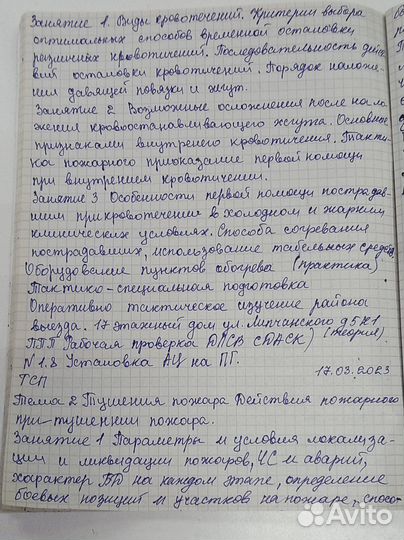 Занятие 1. Виды кровотечений. Критерии выбора
оптимальных способов временной остановки
различных кровотичений. Последовательность дейс
вий остановки кровотичений. Порядок наложе-
ния давящей повязки и жгут.
Занятие 2 Возможные осложнения после нало
жения кровоостанавливающего жгута. Основные
признаками внутренего кровотичения. Такти-
ка пожарного приоказание первой помощи
при внутреннем кровотичении.
Занятие 3 Особенности первой помощи пострадав-
шим прикровотечении в холодном и жарких
климических условиях. Способа согревания
пострадавших, использование табельных средств
Оборудование пунктов обогрева (практика)
Тактико-специальная подготовка
Оперативно тактическое изучение района
выезда. 17 этажный дом ул. Липчанского д5К1
ПТП Рабочая проверка ДАСВ (ДАСК) (теория).
N 1.8 Установка АЦ на ПГ.
17.03.2023
ТСП
Тема 2 Тушения пожара Действия пожарного
при тушении пожара.
Занятие 1 Параметры и условия локализа-
ции и ликвидации пожаров, ЧС и аварий,
характер БД на каждом этапе, определение
боевых позиций и участков на пожаре, спосо-
Avito